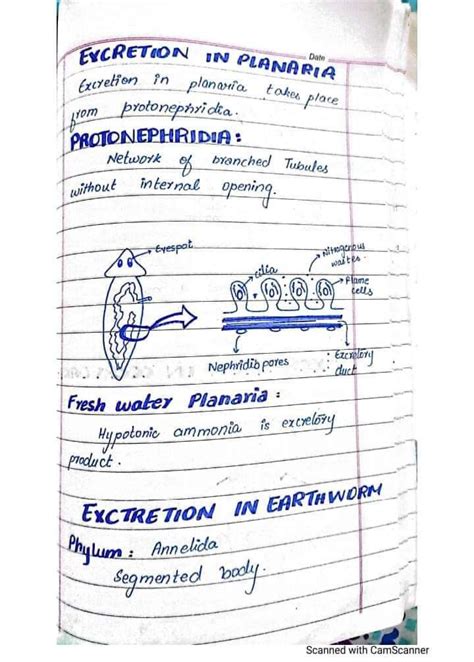 Date
EXCRETION IN PLANARIA
Excretion in planaria takes place
from protonephridia.
PROTONEPHRIDIA:
Network of branched Tubules
without internal opening.
Eyespot
cilia
Nitrogenous
wastes
Flame
cells
Nephridiopores
Excretory
duct
Fresh water Planaria :
Hypotonic ammonia is excretory
product.
EXCTRETION IN EARTHWORM
Phylum : Annelida
Segmented body.
Scanned with CamScanner